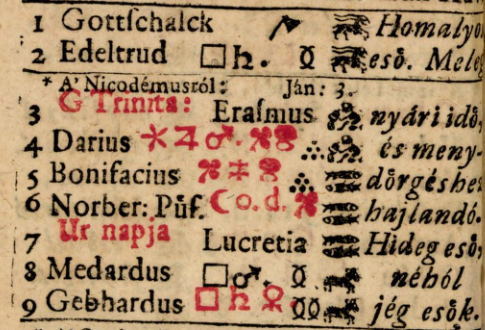 1 Gottſchalck Homalyo
2 Edeltrud □ ♄. esŏ. Meleg
* A' Nicodémusról: Ján: 3.
3 G Trinita: Eraſmus nyári idŏ,
4 Darius ⚹ ♃ ♂. és meny-
5 Bonifacius dŏrgéshez
6 Norber: Pŭſ. ☾ o. d. hajlandó.
7 Ur napja Lucretia Hideg esŏ,
8 Medardus □ ♂. néhól
9 Gebhardus □ ♄ jég esŏk.